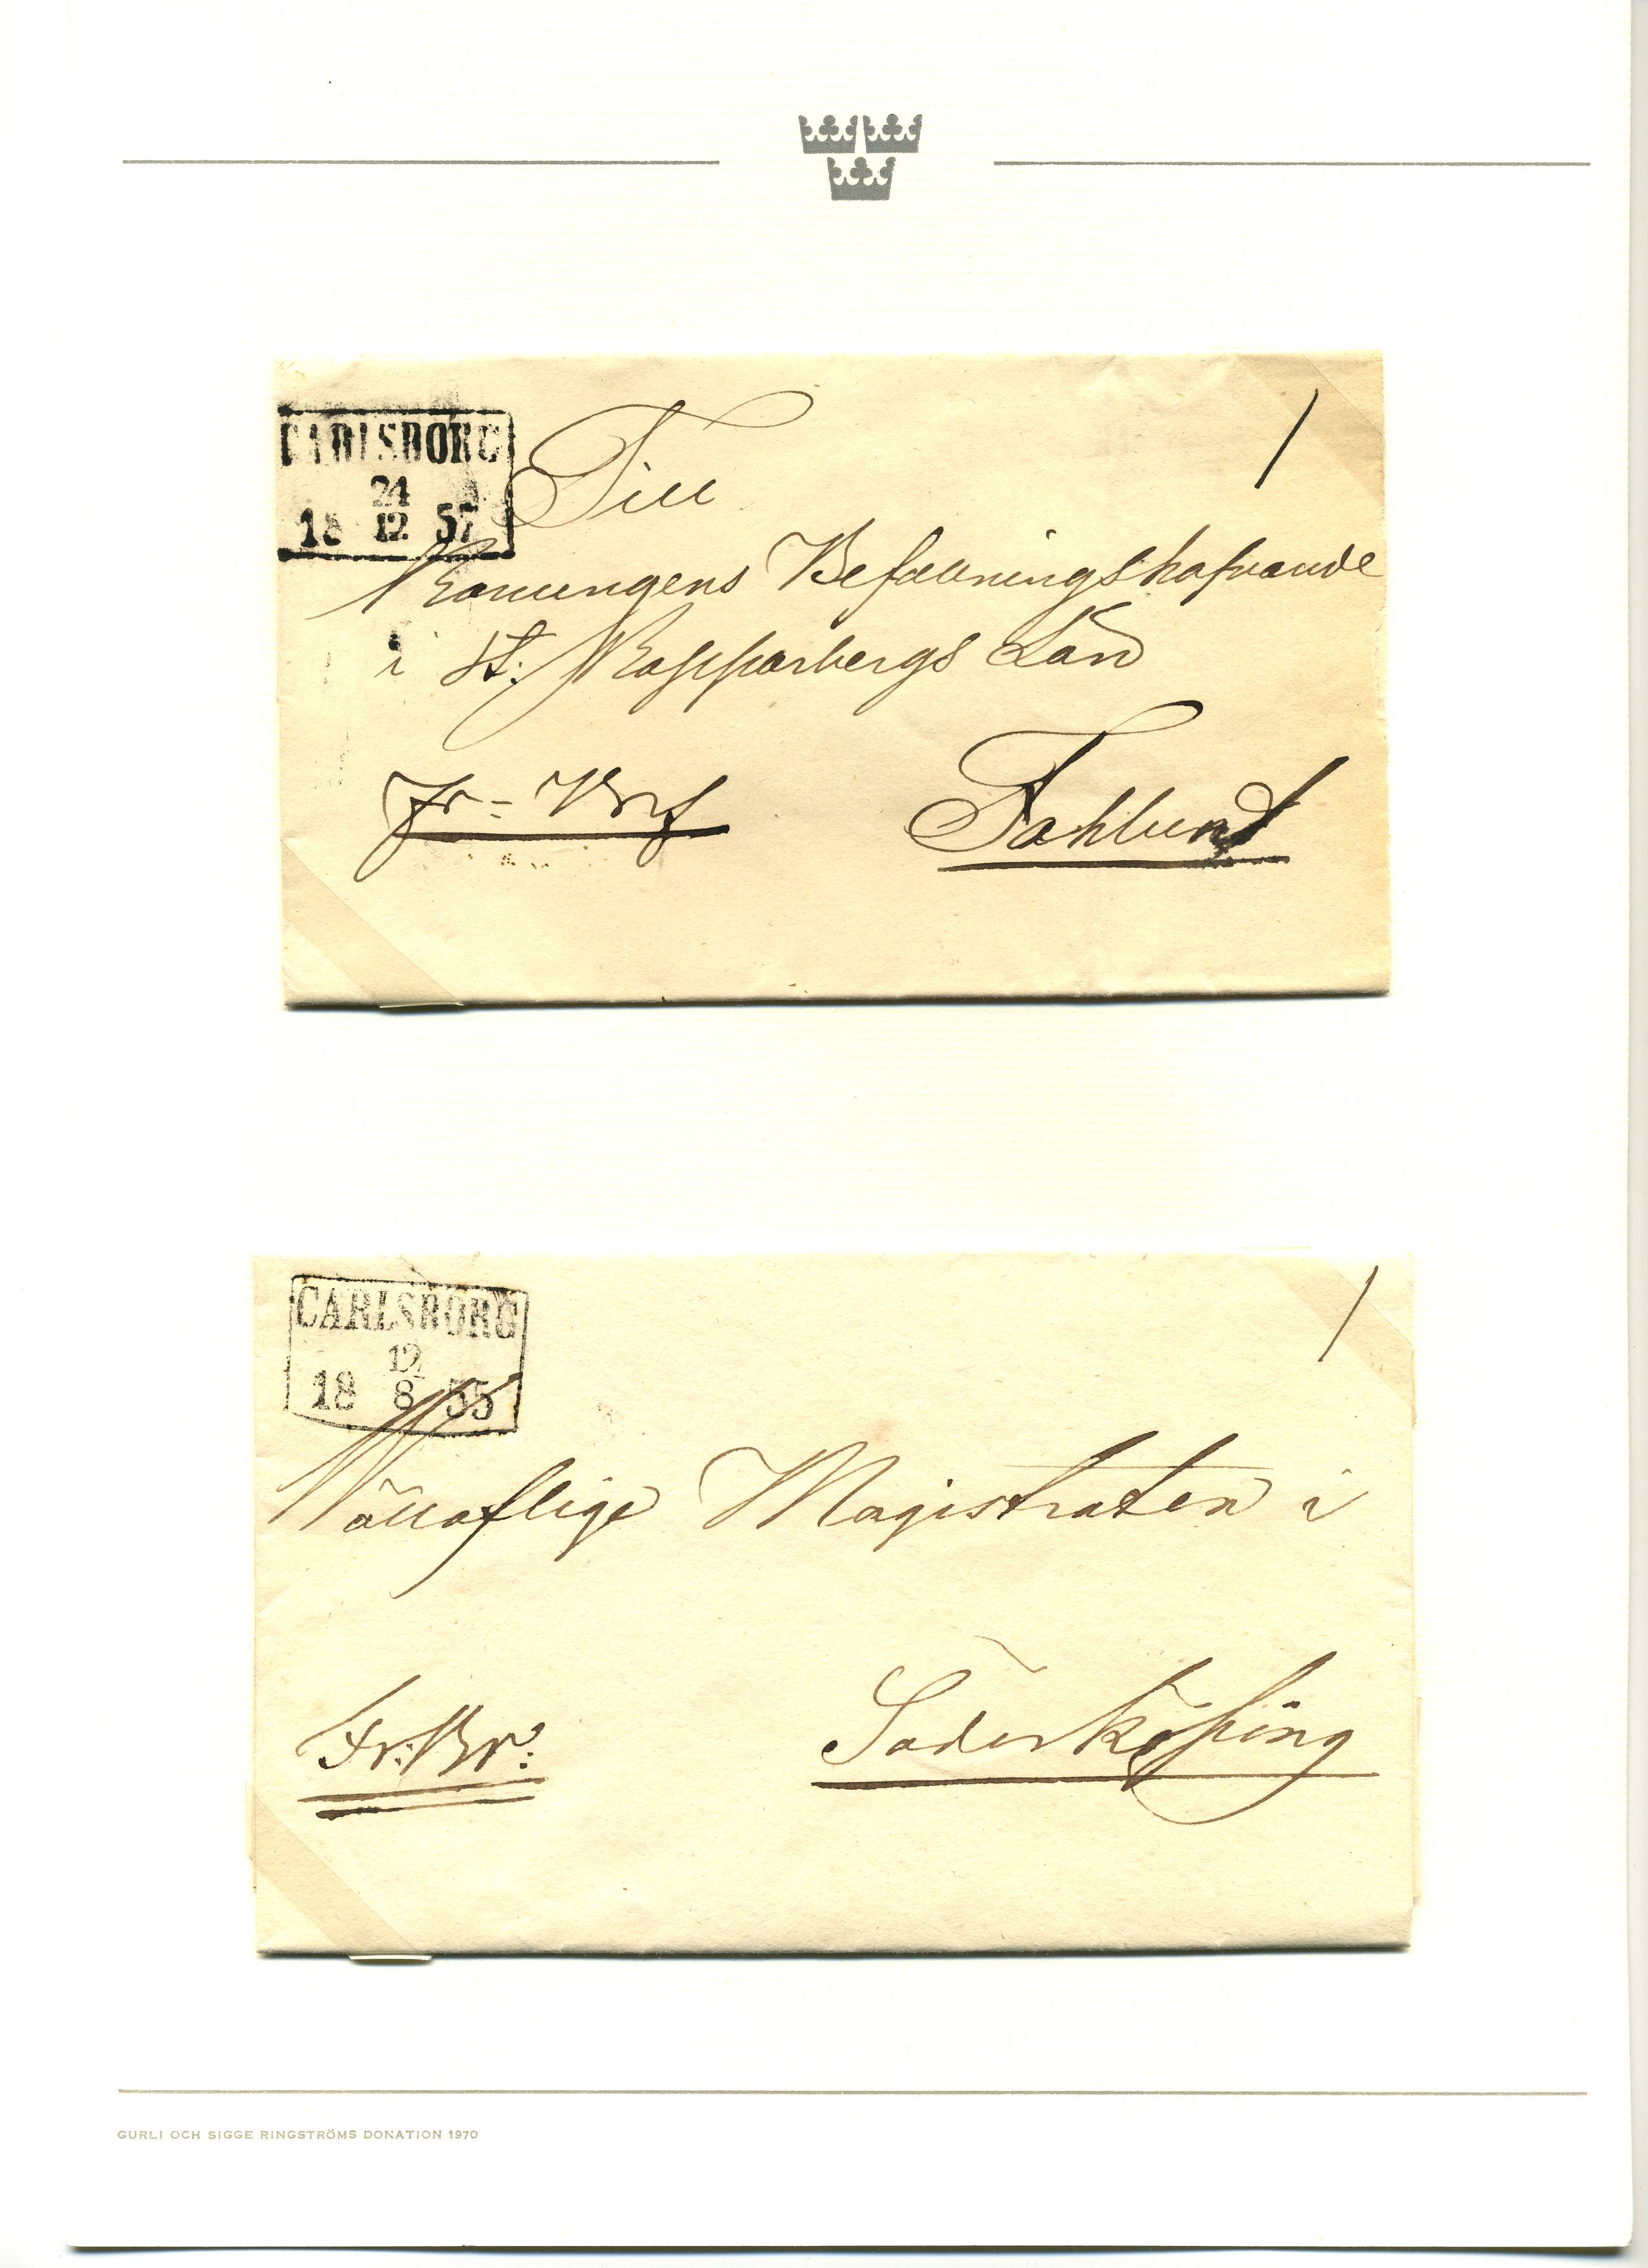 CARLSBORG
24
18 12 57
/
Till
Konungens Befallningshafvande
i St: Kopparbergs Län
Fr= Brf
Fahlun
CARLSBORG
12
18 8 55
/
Välloflige Magistraten i
Fr: Br:
Söderköping
GURLI OCH SIGGE RINGSTRÖMS DONATION 1970